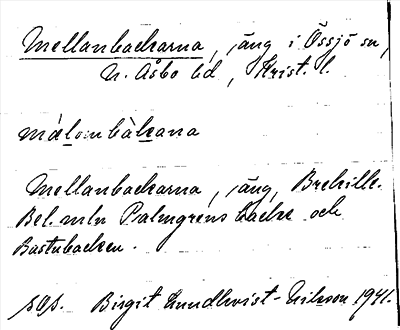 Mellanbackarna, äng i Össjö sn,
N. Åsbo hd, Krist. l.
mǽlombàkana
Mellanbackarna, äng, Brehille.
Bel. mln Palmgrens backe och
Bastubacken.
sos. Birgit Lundkvist-Nilsson 1941.